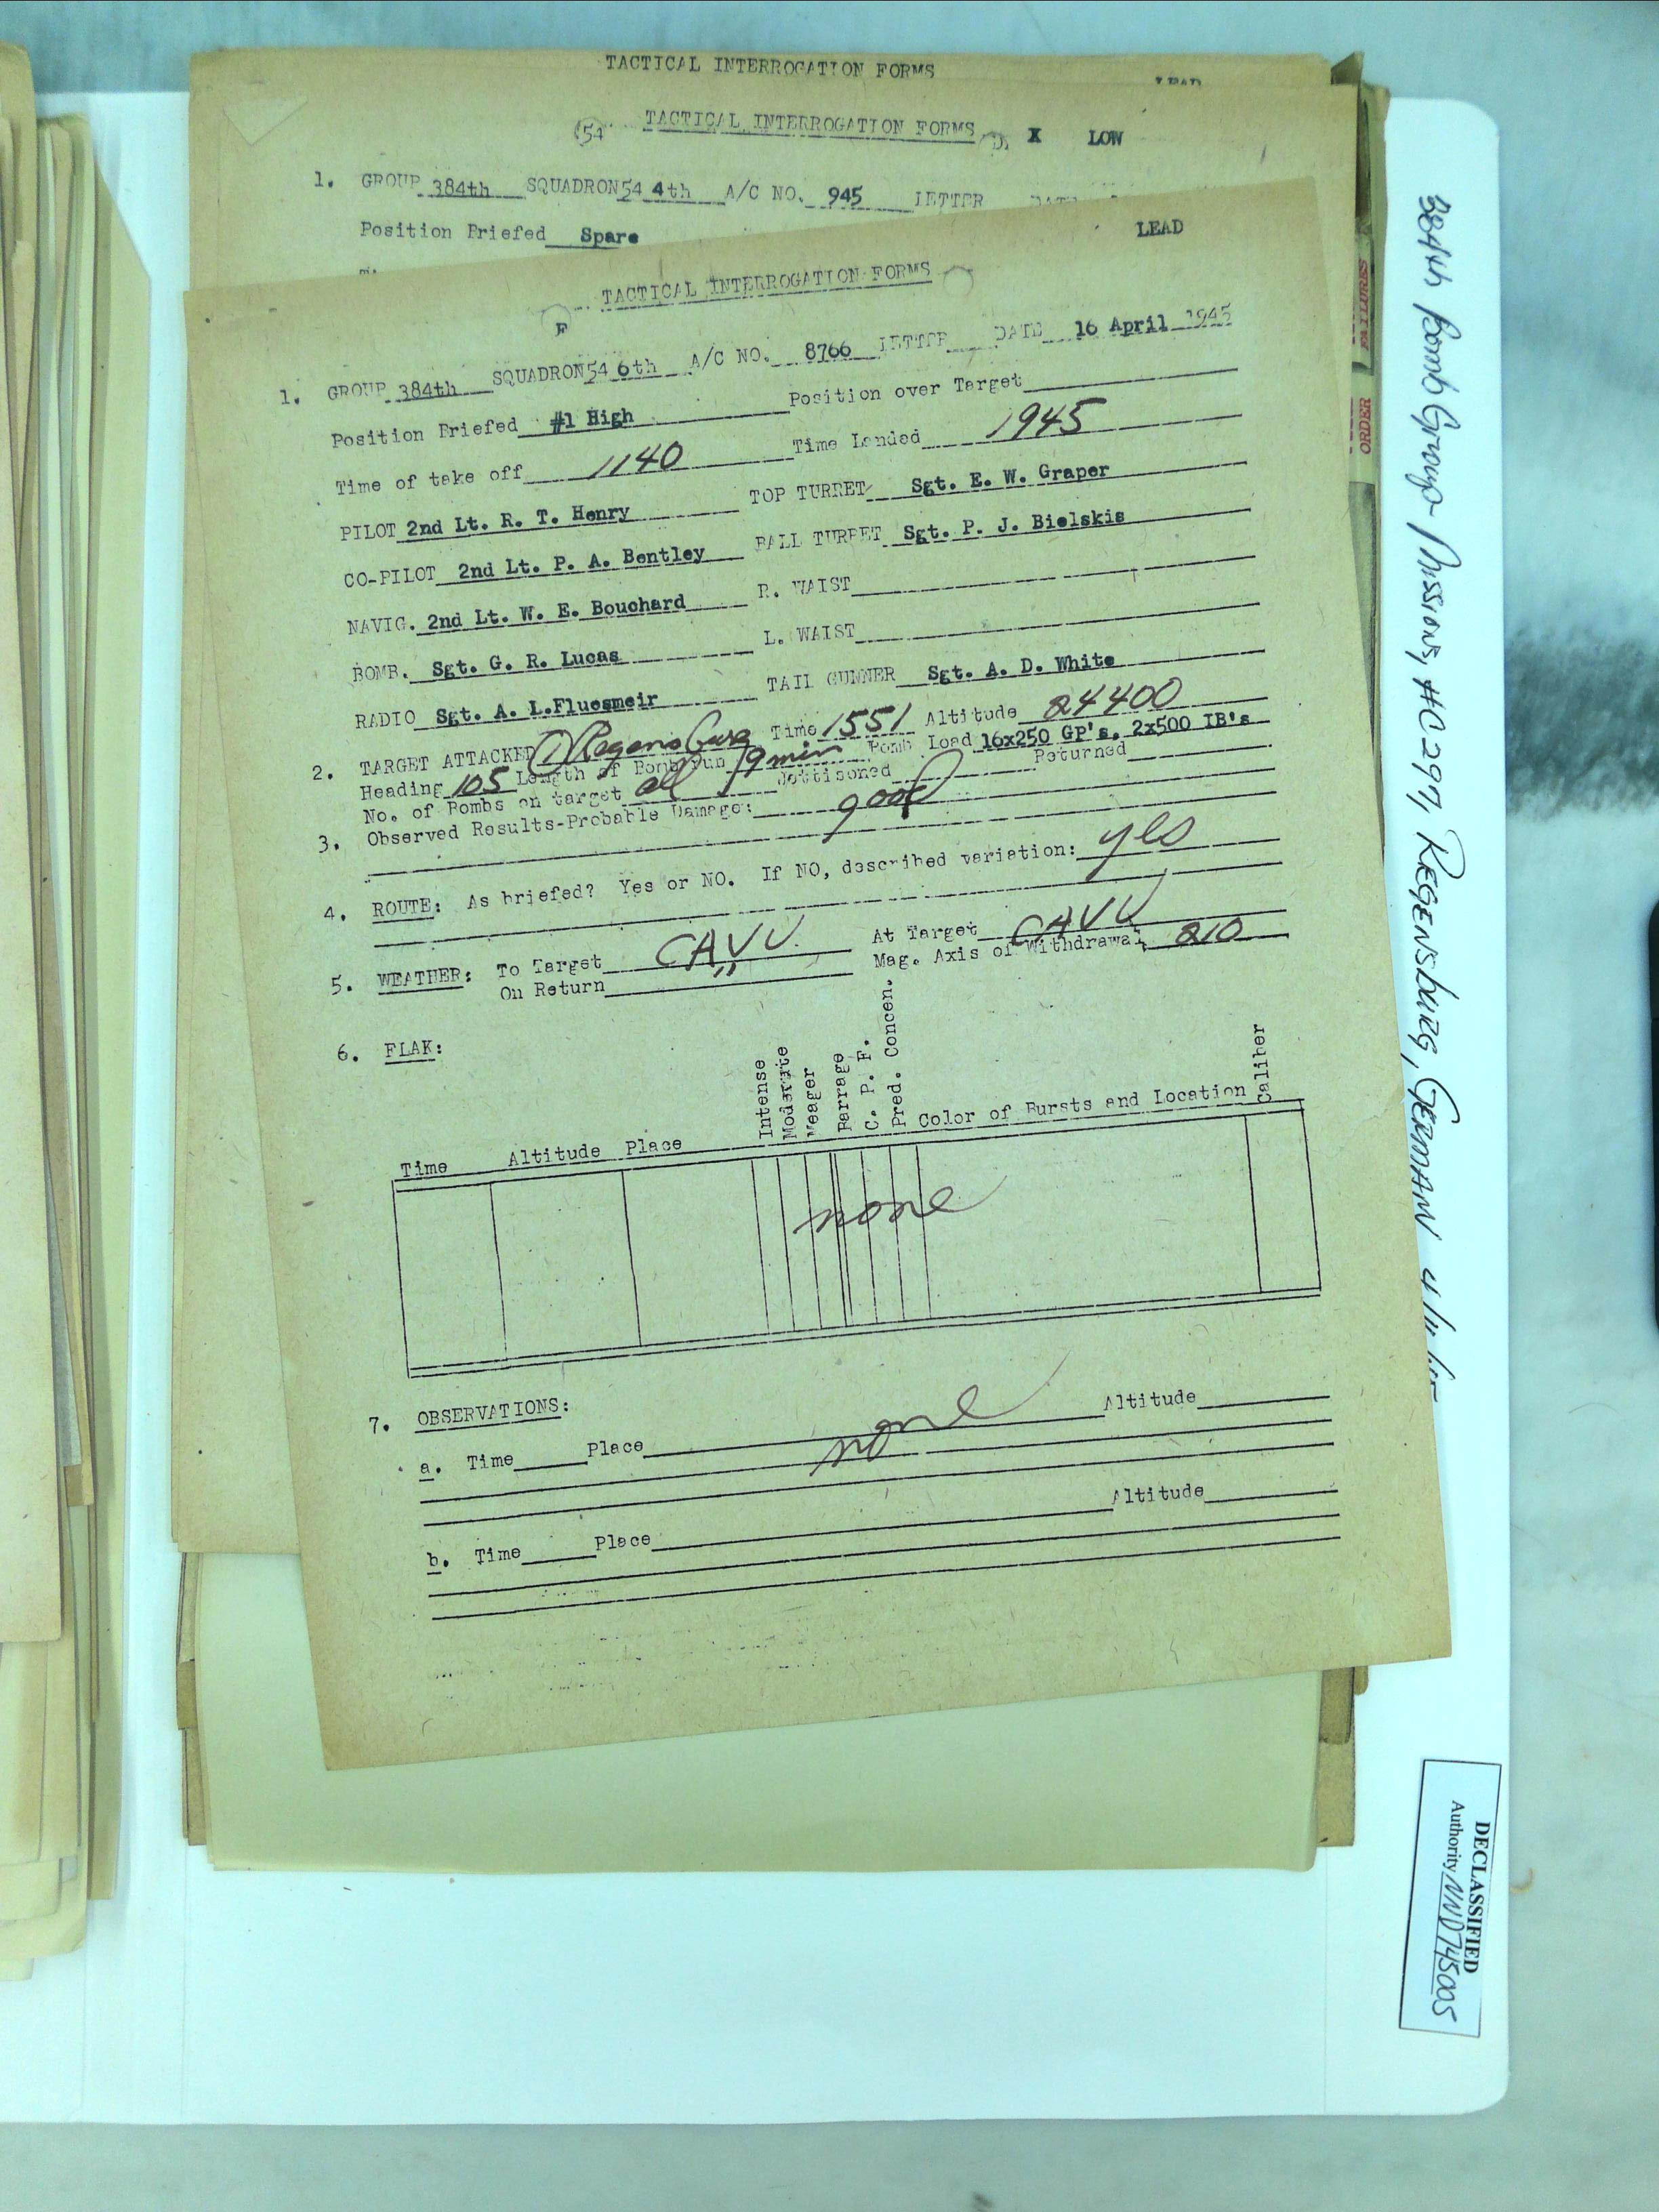 TACTICAL INTERROGATION FORMS
LEAD
54 TACTICAL INTERROGATION FORMS D. X LOW
1. GROUP 384th SQUADRON 54 4th A/C NO. 945 LETTER DATE
Position Briefed Spare
LEAD
TACTICAL INTERROGATION FORMS
F
1. GROUP 384th SQUADRON 54 6th A/C NO. 8766 LETTER DATE 16 April 1945
Position Briefed #1 High Position over Target
Time of take off 1140 Time Landed 1945
PILOT 2nd Lt. R. T. Henry TOP TURRET Sgt. E. W. Graper
CO-PILOT 2nd Lt. P. A. Bentley BALL TURRET Sgt. P. J. Bielskis
NAVIG. 2nd Lt. W. E. Bouchard R. WAIST
BOMB. Sgt. G. R. Lucas L. WAIST
RADIO Sgt. A. L.Fluesmeir TAIL GUNNER Sgt. A. D. White
2. TARGET ATTACKED (1) Regensburg Time 1551 Altitude 24400
Heading 105 Length of Bomb run 9 min Bomb Load 16x250 GP's, 2x500 IB's
No. of Bombs on target all Jettisoned Returned
3. Observed Results-Probable Damage: good
4. ROUTE: As briefed? Yes or NO. If NO, described variation: yes
5. WEATHER: To Target CAVU At Target CAVU
On Return " Mag. Axis of Withdrawal 210
6. FLAK:
Time Altitude Place Intense Moderate Meager Barrage C. P. F. Pred. Concen. Color of Bursts and Location Caliber
none
7. OBSERVATIONS:
a. Time Place none Altitude
b. Time Place Altitude
FAILURES
ORDER
384th Bomb Group Missions, #C297, REGENSBURG, GERMANY
DECLASSIFIED
Authority NND745005